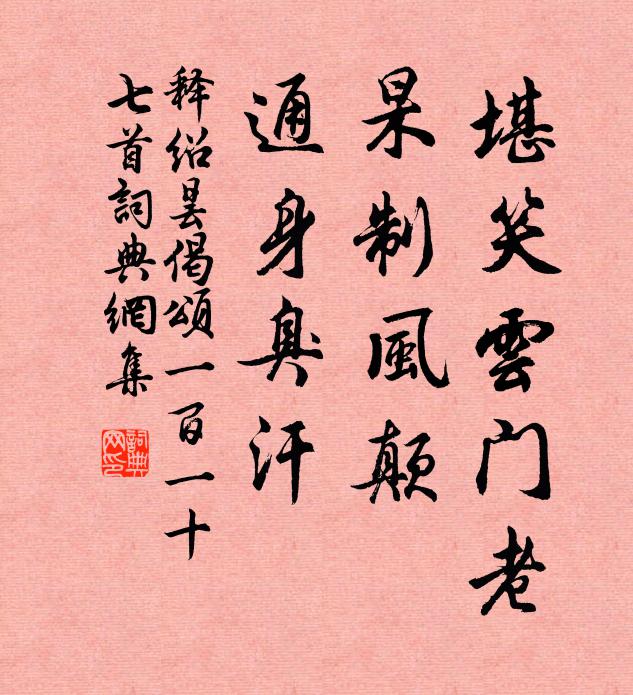 堪笑雲门老
杲制風颠
通身臭汗
释绍昙偈頌一百一十
七首詞典網集
詞典網印